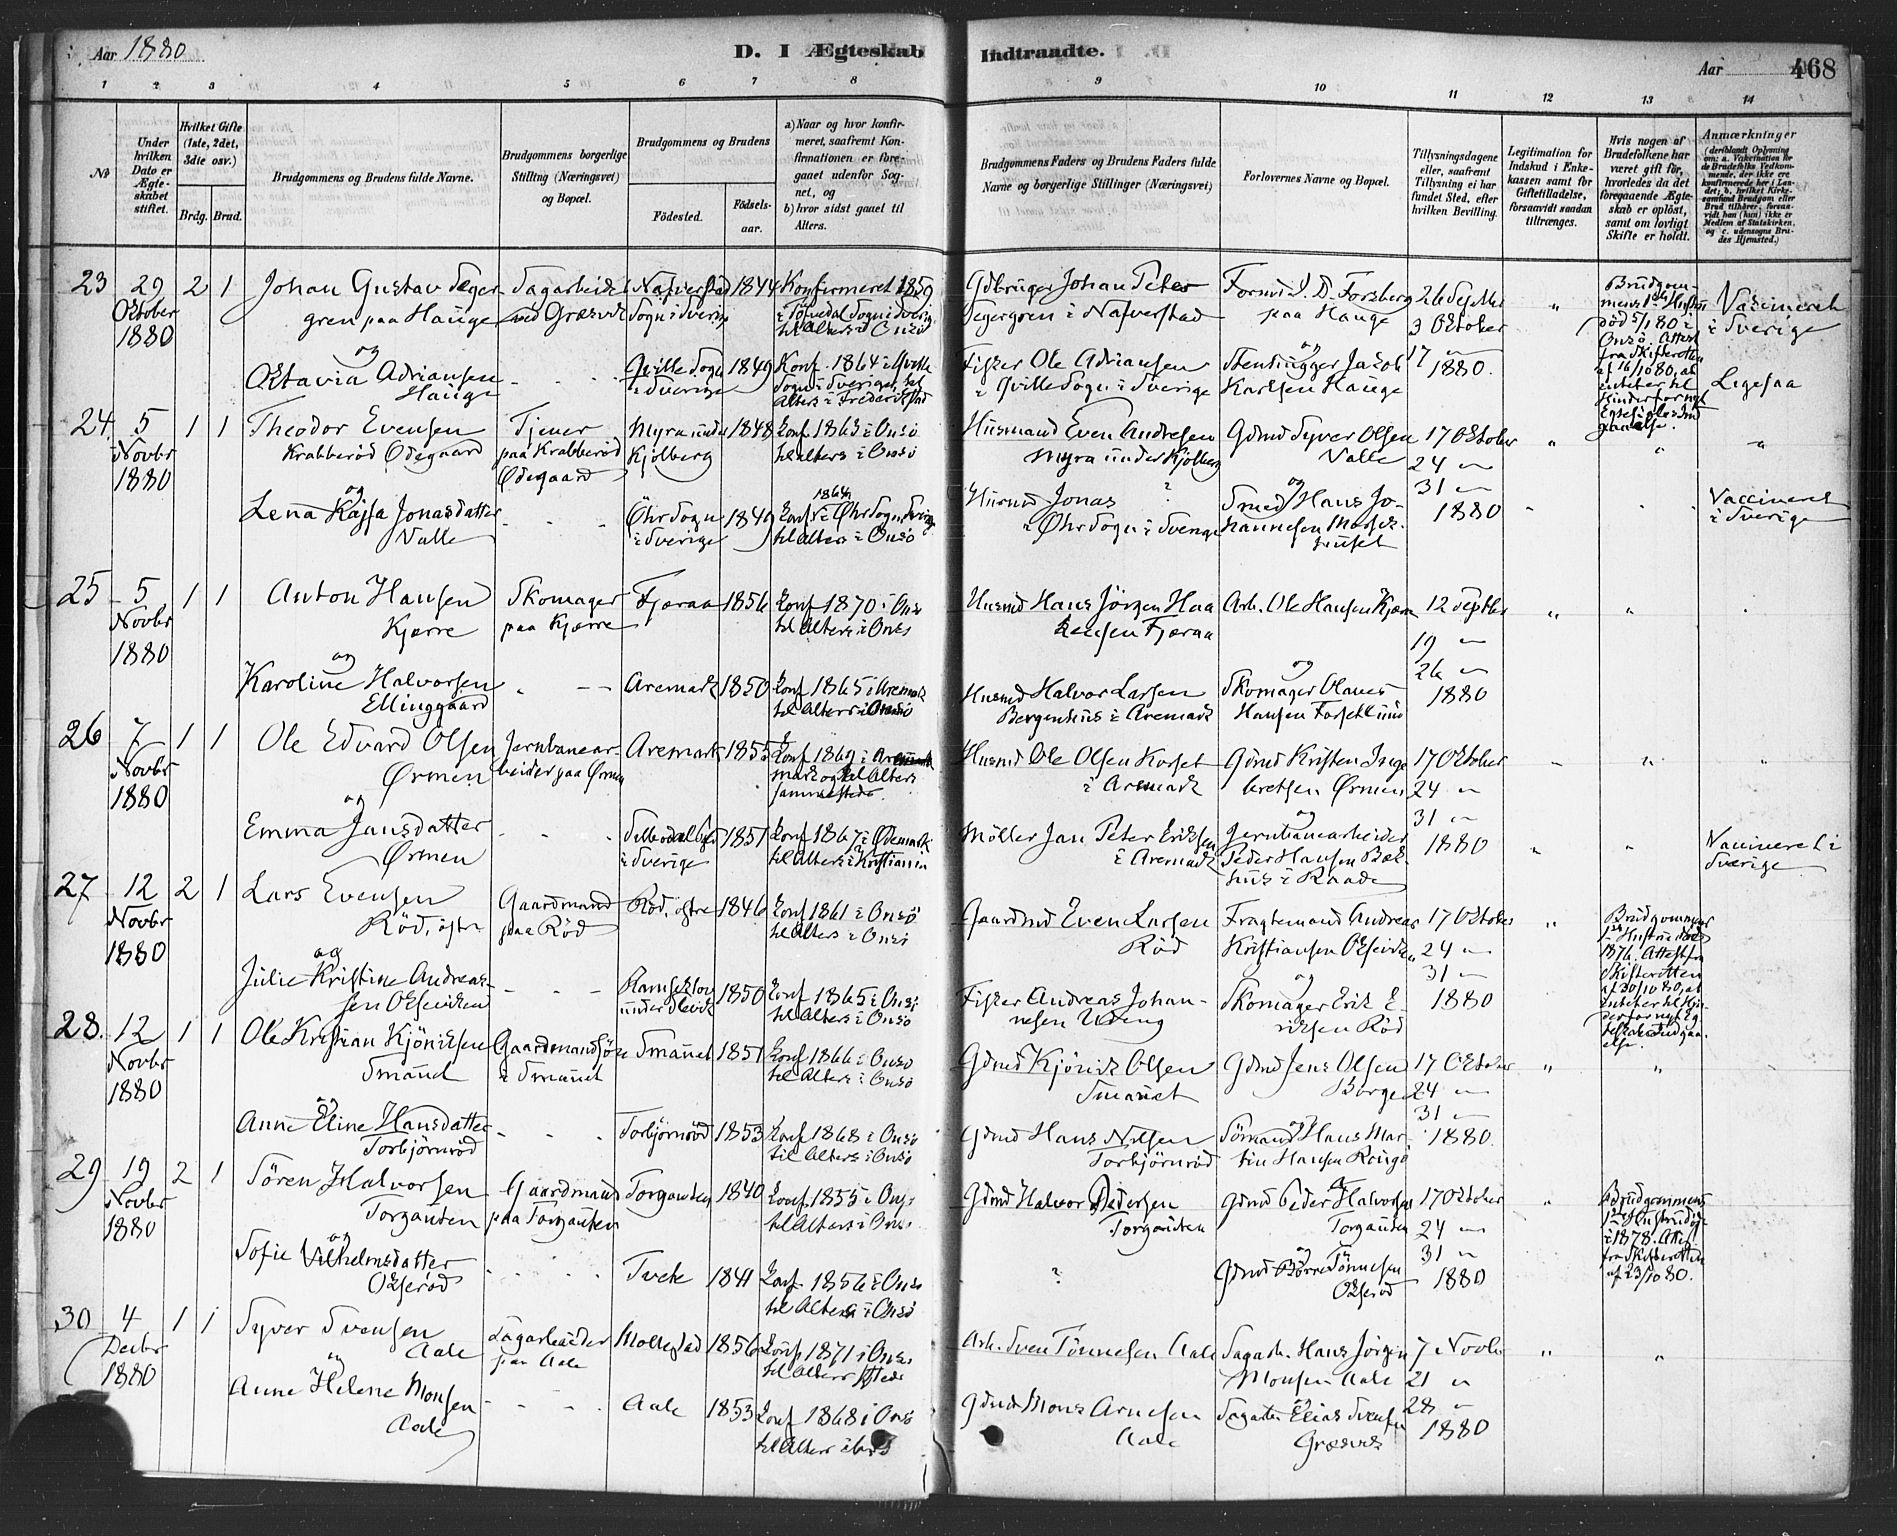 Aar 1880
D. I Ægteskab Indtraadte.
Aar 468
1 2 3 4 5 6 7 8 9 10 11 12 13 14
No
Under hvilken Dato er Ægteskabet stiftet.
Hvilket Gifte (1ste, 2det, 3die osv.)
Brdg. Brud.
Brudgommens og Brudens fulde Navne.
Brudgommens borgerlige Stilling (Næringsvei) og Bopæl.
Brudgommens og Brudens
Fødested.
Fødselsaar.
a) Naar og hvor konfirmeret, saafremt Konfirmationen er foregaaet udenfor Sognet, og
b) hvor sidst gaaet til Alters.
Brudgommens Faders og Brudens Faders fulde Navne og borgerlige Stillinger (Næringsvei)
Forlovernes Navne og Bopæl.
Tillysningsdagene eller, saafremt Tillysning ei har fundet Sted, efter hvilken Bevilling.
Legitimation for Indskud i Enkekassen samt for Giftetilladelse, forsaavidt saadan tiltrænges.
Hvis nogen af Brudefolkene har været gift før, hvorledes da det foregaaende Ægteskab er opløst, samt om lovligt Skifte er holdt.
Anmærkninger (deriblandt Oplysning om: a. Vakcination for de Brudefolks Vedkommende, der ikke ere konfirmerede her i Landet; b. hvilket Kirkesamfund Brudgom eller Brud tilhører, forsaavidt han (hun) ikke er Medlem af Statskirken, og c. udensogns Brudes Hjemsted.)
23 29 Oktober 1880 2 1
Johan Gustav Segergren paa Hauge
Sagarbeider ved Græsvik
Nafverstad Sogn i Sverige 1844
Konfirmeret 1859 i Töfvedal Sogn i Sverig til Alters i Onsö
Gdbruger Johan Peter Segergren i Nafverstad
Formd J. D. Forsberg paa Hauge
26 Septbr
3 Oktober
17 —
1880.
Brudgommens 1ste Hustru död 5/1 80 i Onsö. Attest fra Skifteretten af 16/10 80, at intet er til Hinder for nyt Egteskabs Indgaaelse.
Vaccineret i Sverige
og
Oktavia Adriansen Hauge
Qville Sogn i Sverige 1849
Konf. 1864 i Qville Sogn i Sverige, til Alters i Frederikstad
Fisker Ole Adriansen i Qville Sogn i Sverige
og
Stenhugger Jacob Karlsen Hauge
Ligesaa
24. 5 Novbr 1880 1 1
Theodor Evensen Krabberöd Ödegaard
Tjener paa Krabberöd Ödegaard
Myra under Kjölberg 1848
Konf 1863 i Onsö til Alters i Onsö
Husmand Even Andresen Myra under Kjölberg
Gdmd Syver Olsen Valle
17 Oktober
24 —
31 —
1880
og
Lena Kajsa Jonasdatter Valle
Öhr Sogn i Sverige 1849
Konf 1864 i Öhr Sogn, Sverige til Alters i Onsö
Husmd Jonas ? i Öhr Sogn i Sverige
og
Smed Hans Johannesen
Vaccineret i Sverige
25 5 Novbr 1880 1 1
Anton Hansen Kjærre
Skomager paa Kjærre
Fjæraa 1856
Konf 1870 i Onsö til Alters i Onsö
Husmd Hans Jörgen Haakensen Fjæraa
Arb. Ole Hansen Kjærre
12 Septbr
19 —
26 —
1880
og
Karoline Halvorsen Ellinggaard
Aremark 1850
Konf 1865 i Aremark til Alters i Onsö
Husmd Halvor Larsen Bergenhus i Aremark
og
Skomager Olaves Hansen
26 7 Novbr 1880 1 1
Ole Edvard Olsen Ørmen
Jernbanearbeider paa Ørmen
Aremark 1855
Konf 1869 i Aremark og til Alters sammesteds
Husmd Ole Olsen Korset i Aremark
Gdmd Kristen Ingebretsen Ørmen
17 Oktober
24 —
31 —
1880
og
Emma Jansdatter Ørmen
i Sverige 1851
Konf 1867 i Ødemark til Alters i Kristiania
Möller Jan Peter Eriksen i Aremark
og
Jernbanearbeider Peder Hansen Bakhus i Raade
Vaccineret i Sverige
27 12 Novbr 1880 2 1
Lars Evensen Röd, östre
Gaardmand paa Röd
Röd, östre 1846
Konf 1861 i Onsö til Alters i Onsö
Gaardmd Even Larsen Röd
Fragtemand Andreas Kristiansen Oksviken
17 Oktober
24 —
31 —
1880
Brudgommens 1ste Hustru död 1876. Attest fra Skifteretten af 30/10 80, at Intet er til Hinder for nyt Egteskabs Indgaaelse.
og
Julie Kristine Andreassen Oksviken
Ramseklov under Slevik 1850
Konf 1865 i Onsö til Alters i Onsö
Fisker Andreas Johannesen Udeng
og
Skomager Erik Eriksen Röd
28. 12 Novbr 1880 1 1
Ole Kristian Kjöniksen Smaud
Gaardmandsön i Smauet
Smauet 1851
Konf 1866 i Onsö til Alters i Onsö
Gdmd Kjönik Olsen Smauet
Gdmd Jens Olsen Borge
17 Oktober
24 —
31 —
1880.
og
Anne Eline Hansdatter Torbjörnröd
Torbjörnröd 1853
Konf 1868 i Onsö til Alters i Onsö
Gdmd Hans Nilsen Torbjörnröd
og
Sömand Hans Martin Hansen Rougö
29 19 Novbr 1880 2 1
Sören Halvorsen Torgauten
Gaardmand paa Torgauten
Torgauten 1840
Konf 1855 i Onsö til Alters i Onsö
Gdmd Halvor Pedersen Torgauten
Gdmd Peder Halvorsen Torgauten
17 Oktober
24 —
31 —
1880
Brudgommens 1ste Hustru död i 1878. Attest fra Skifteretten af 23/10 80.
og
Sofie Vilhelmsdatter Okseröd
Tvete 1841
Konf 1856 i Onsö til Alters i Onsö
?
og
Gdmd Börre Tönnesen Okseröd
30 4 Decbr 1880 1 1
Syver Svensen Aale
Sagarbeider paa Aale
1856
Konf 1871 i Onsö til Alters
Arb. Sven Tönnesen Aale
Sagarb. Hans Jörgen Monsen Aale
7 Novbr
21 —
28 —
1880
og
Anne Helene Monsen Aale
Aale 1853
Konf 1868 i Onsö til Alters i Onsö
Gdmd Mons Arnesen Aale
og
Sagarb. Elias Svensen Græsvik